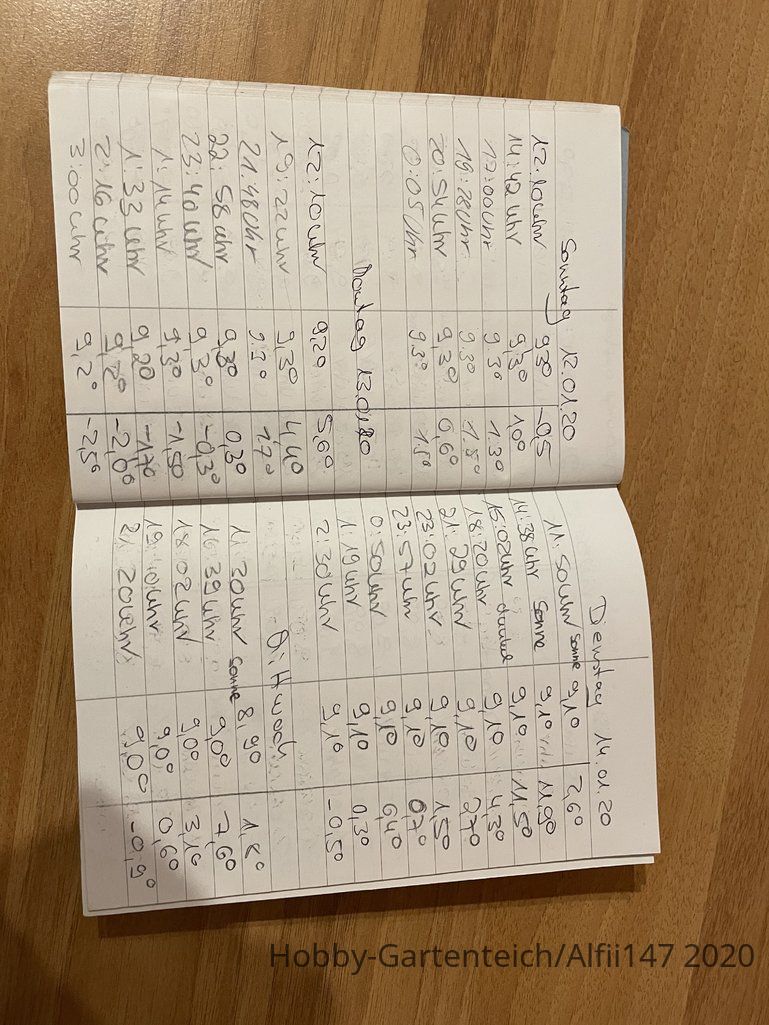 Sonntag 12.01.20
12:10 Uhr 9,3° -0,5
14:42 Uhr 9,3° 1,0°
17:00 Uhr 9,3° 1,3°
19:28 Uhr 9,3° 1,5°
20:54 Uhr 9,3° 0,6°
0:05 Uhr 9,3° 1,5°
Montag 13.01.20
12:10 Uhr 9,2° 5,6°
19:22 Uhr 9,3° 4,4°
21:48 Uhr 9,3° 1,7°
22:58 Uhr 9,3° 0,3°
23:40 Uhr 9,3° -0,3°
1:14 Uhr 9,3° -1,5°
1:33 Uhr 9,2° -1,7°
2:16 Uhr 9,2° -2,0°
3:00 Uhr 9,2° -2,5°
Dienstag 14.01.20
11:50 Uhr Sonne 9,1° 2,6°
14:38 Uhr Sonne 9,1° 11,9°
15:02 Uhr 9,1° 11,5°
18:20 Uhr 9,1° 4,3°
21:29 Uhr 9,1° 2,7°
23:02 Uhr 9,1° 1,5°
23:57 Uhr 9,1° 0,7°
0:50 Uhr 9,1° 0,4°
1:19 Uhr 9,1° 0,3°
2:30 Uhr 9,1° -0,5°
11:30 Uhr Sonne 8,9°
16:39 Uhr 9,0° 7,6°
18:02 Uhr 9,0° 3,1°
19:40 Uhr 9,0° 0,6°
21:20 Uhr 9,0° -0,9°
Hobby-Gartenteich/Alfii147 2020